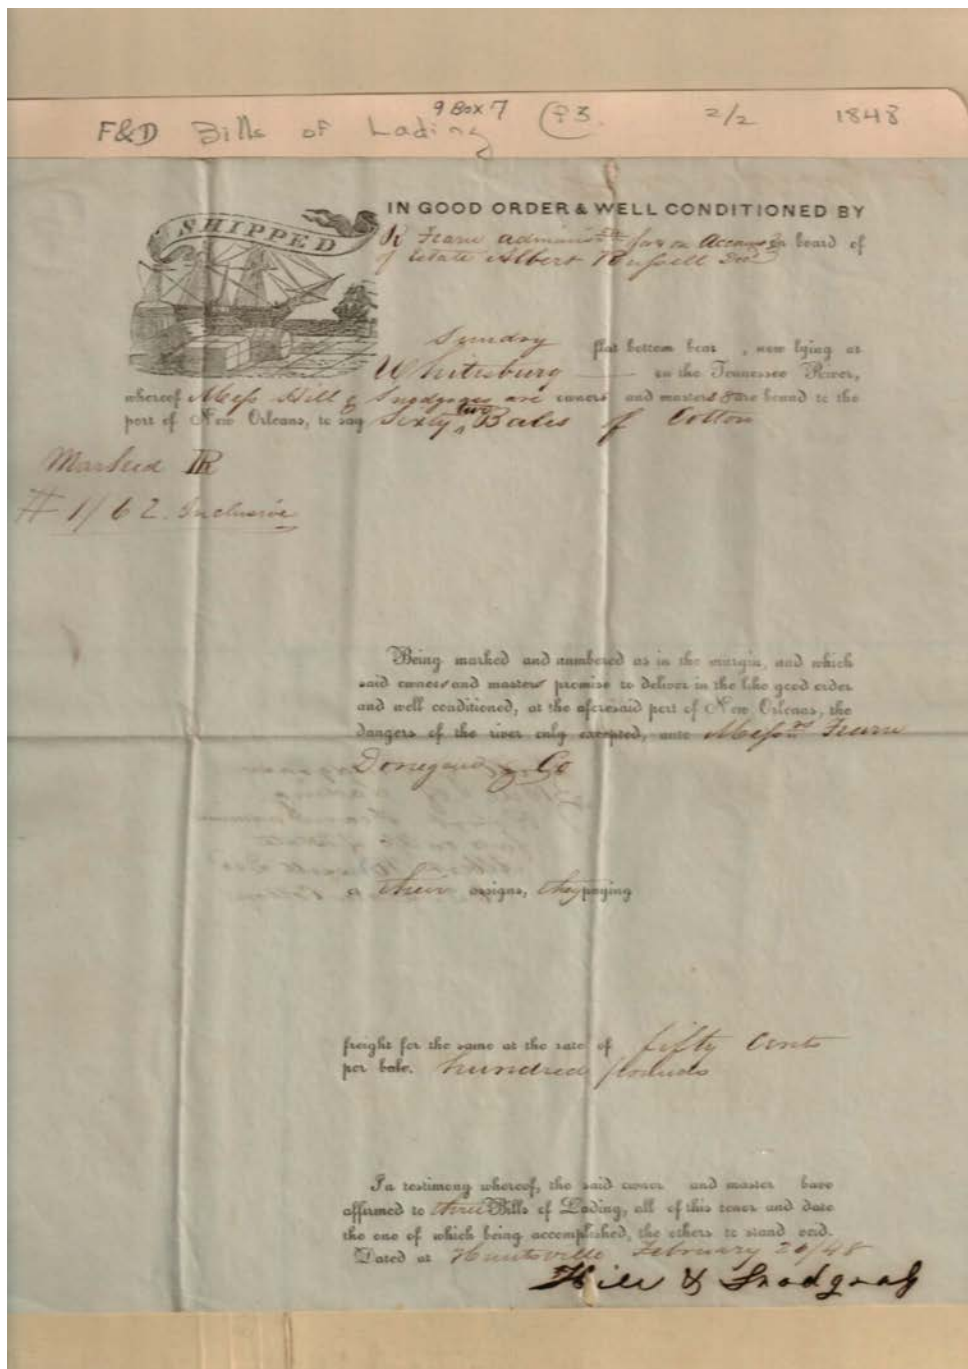 9 Box 7
F&D Bills of Lading 2/2 1848
SHIPPED
IN GOOD ORDER & WELL CONDITIONED BY
R Fearn for on Account on board of
of Estate Albert Russell Decd
Sundry flat bottom boat, now lying at
Whitesburg on the Tennessee River,
whereof Mess Hill & Snodgrass are owners and masters & are bound to the
port of New Orleans, to say Sixty two Bales of Cotton
Marked
# 1/62 Inclusive
Being marked and numbered as in the margin, and which
said owners and masters promise to deliver in the like good order
and well conditioned, at the aforesaid port of New Orleans, the
dangers of the river only excepted, unto Messrs Fearn
Donegan & Co
or their assigns, they paying
freight for the same at the rate of fifty Cents
per bale. hundred pounds
In testimony whereof, the said owner and master have
affirmed to three Bills of Lading, all of this tenor and date
the one of which being accomplished, the others to stand void.
Dated at Huntsville February 20/48
Hill & Snodgrass